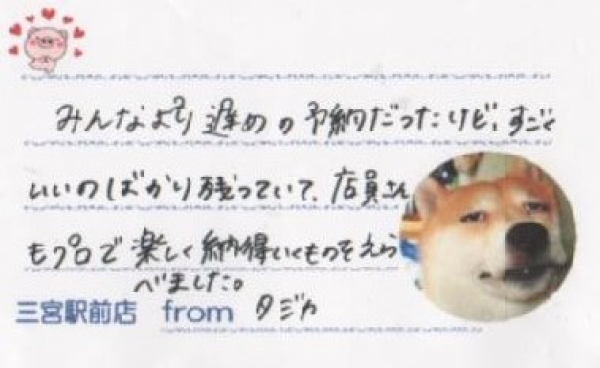 みんなより遅めの予約だったけど、すごく
いいのばかり残っていて、店員さん
もプロで楽しく納得いくものをえら
べました。
三宮駅前店 from タジカ